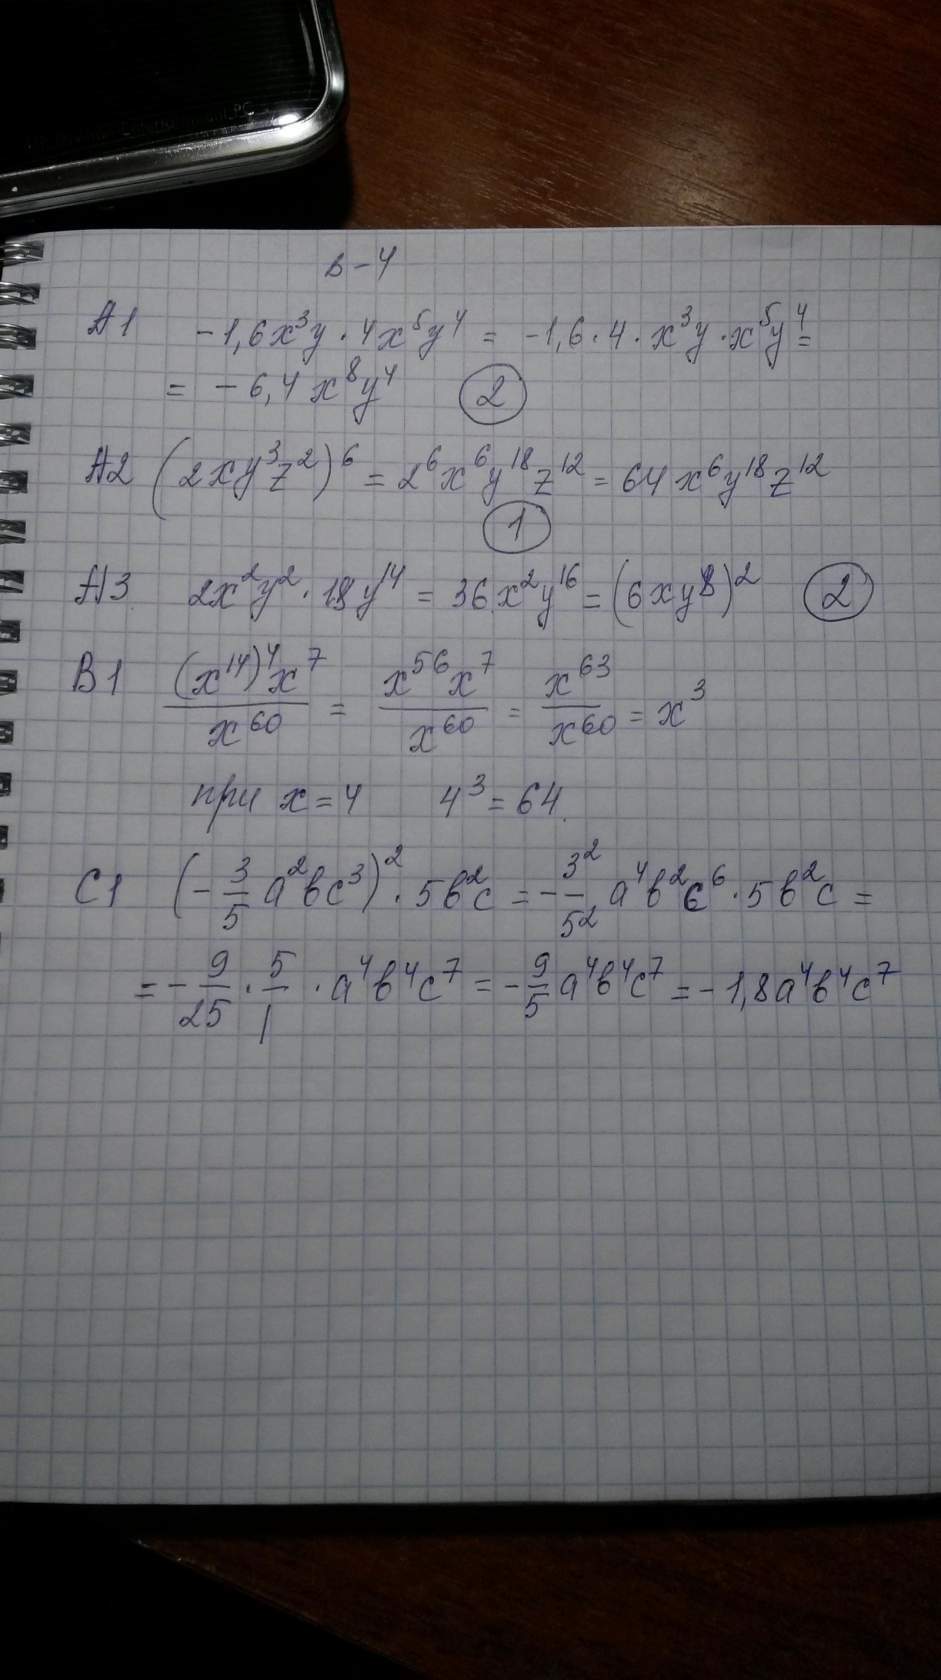 в-4
А1 -1,6x³y · 4x⁵y⁴ = -1,6 · 4 · x³y · x⁵y⁴ =
= -6,4x⁸y⁴ ②
А2 (2xy³z²)⁶ = 2⁶x⁶y¹⁸z¹² = 64x⁶y¹⁸z¹²
①
А3 2x²y² · 18y¹⁴ = 36x²y¹⁶ = (6xy⁸)² ②
В1 (x¹⁴)⁴x⁷/x⁶⁰ = x⁵⁶x⁷/x⁶⁰ = x⁶³/x⁶⁰ = x³
при x = 4 4³ = 64.
С1 (-3/5 a²bc³)² · 5b²c = -3²/5² a⁴b²c⁶ · 5b²c =
= -9/25 · 5/1 · a⁴b⁴c⁷ = -9/5 a⁴b⁴c⁷ = -1,8a⁴b⁴c⁷